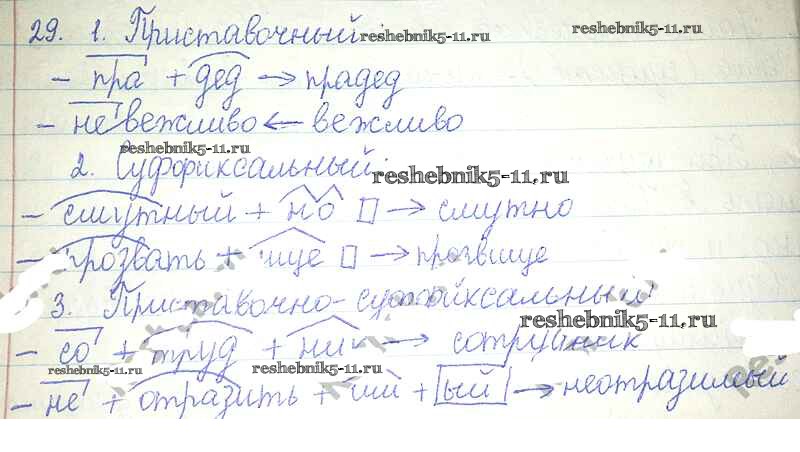 29. 1. Приставочный: reshebnik5-11.ru reshebnik5-11.ru
– пра + дед → прадед
– невежливо ← вежливо
reshebnik5-11.ru
2. Суффиксальный. reshebnik5-11.ru
– смутный + но □ → смутно
– прозвать + ище □ → прозвище
3. Приставочно-суффиксальный
reshebnik5-11.ru
– со + труд + ник → сотрудник
reshebnik5-11.ru reshebnik5-11.ru
– не + отразить + им + ый → неотразимый